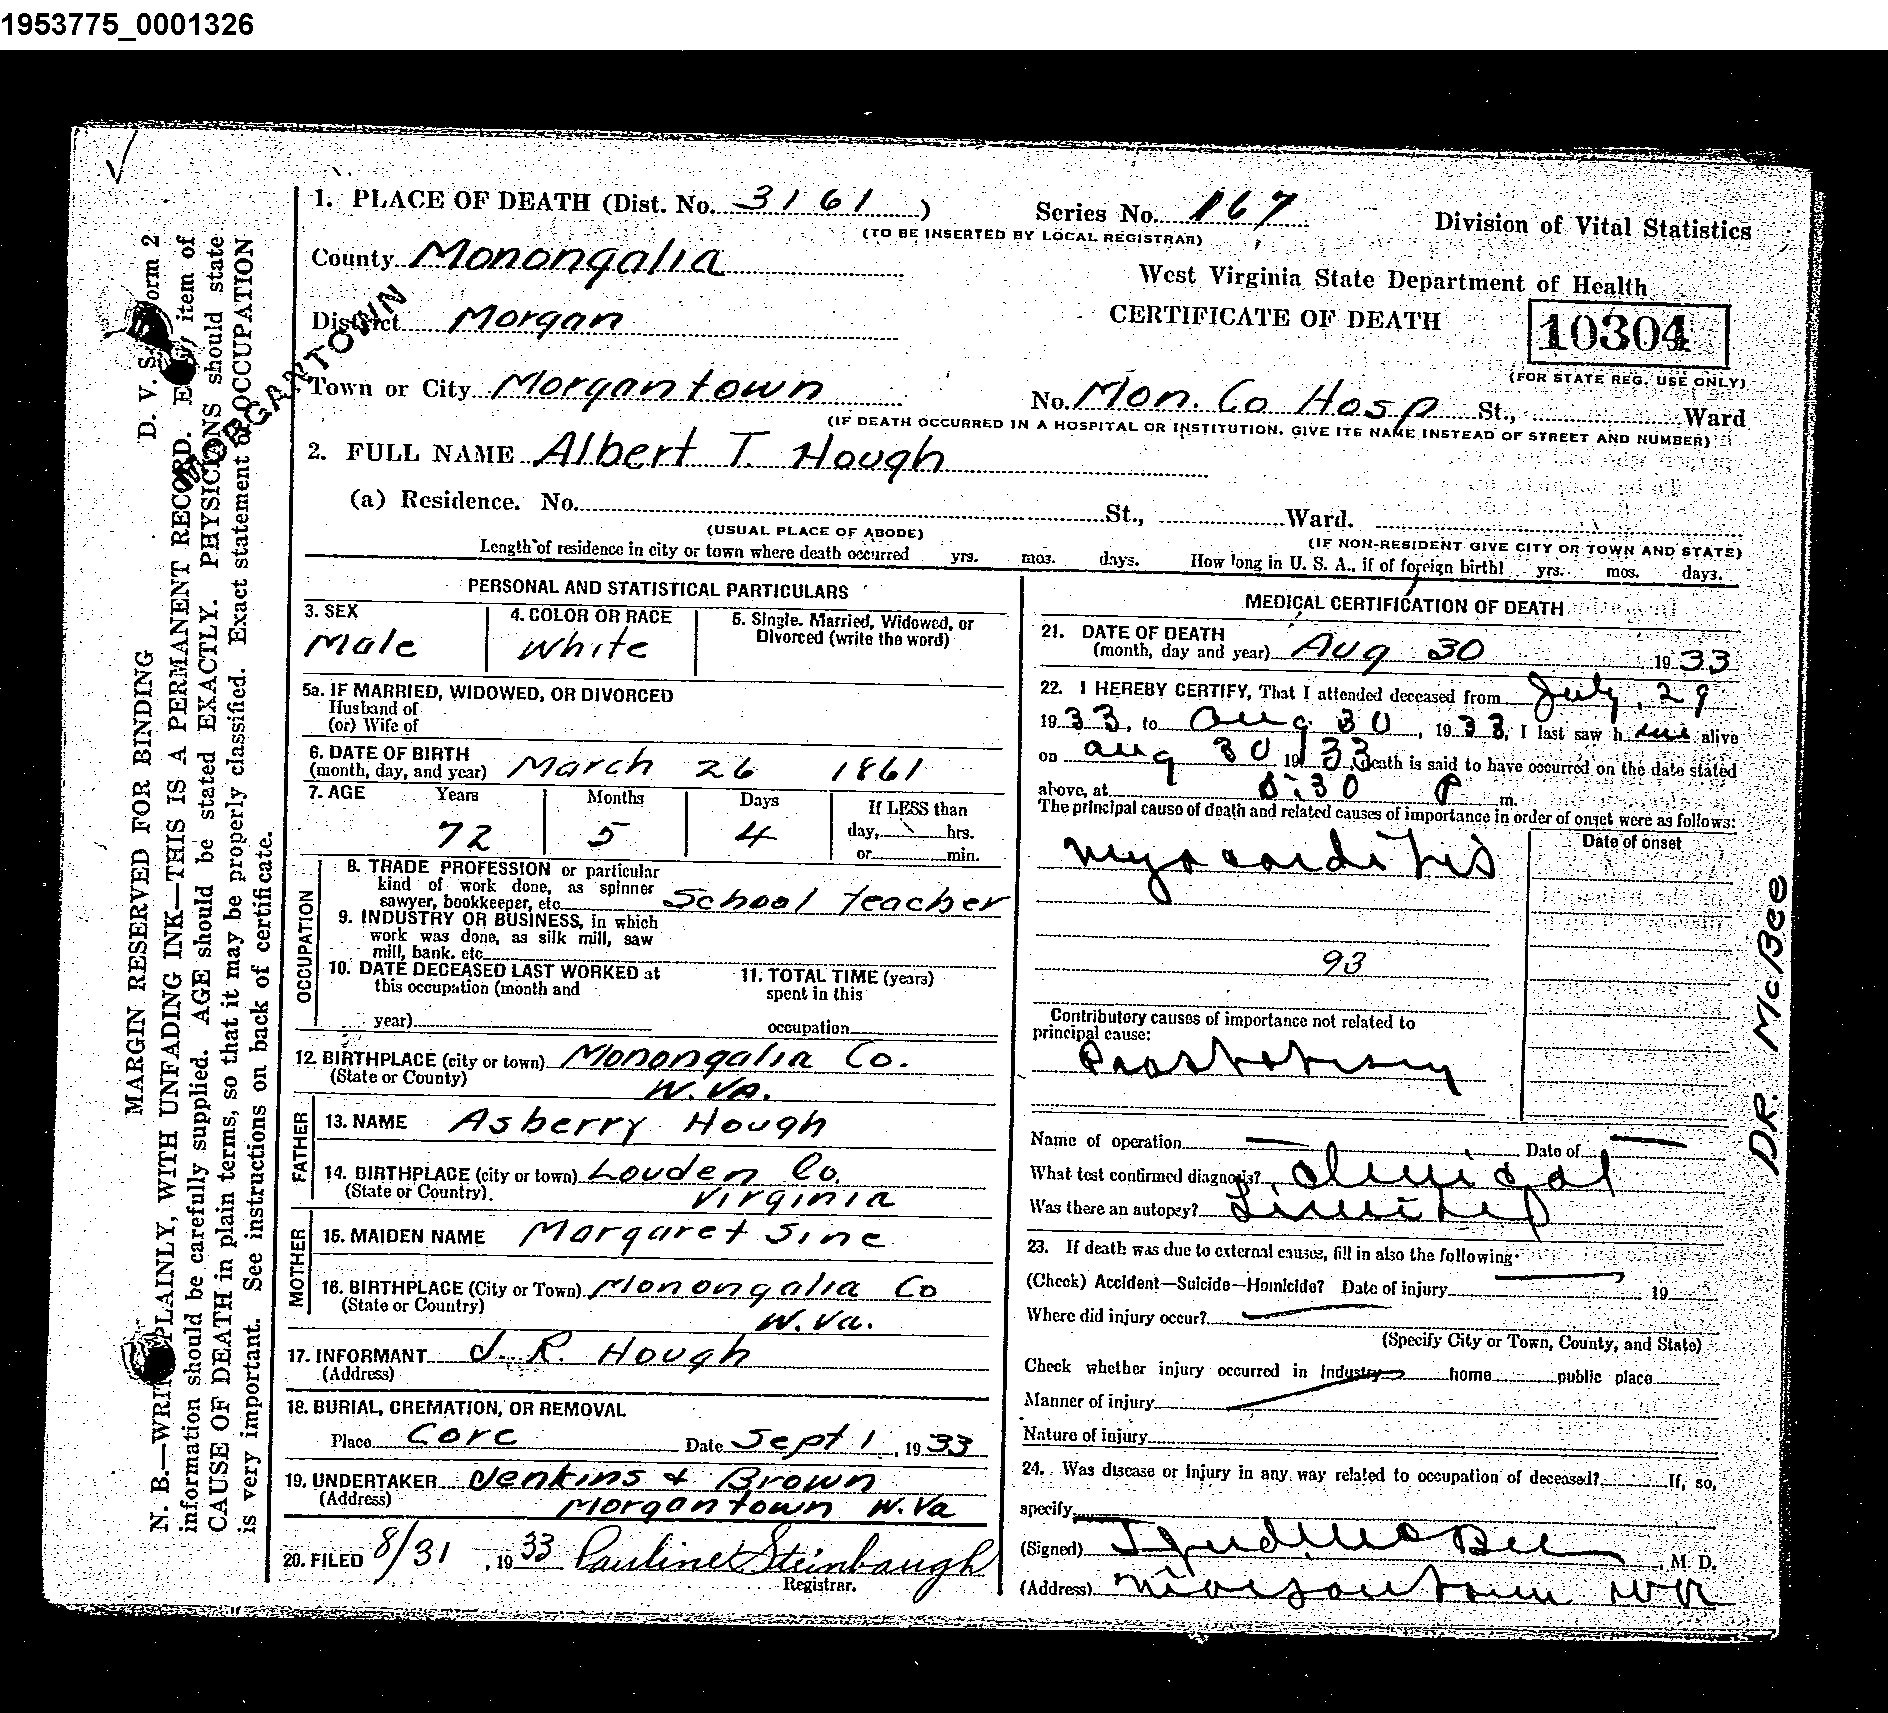 1953775_0001326
1. PLACE OF DEATH (Dist. No. 3161 )
Series No. 167
(TO BE INSERTED BY LOCAL REGISTRAR)
Division of Vital Statistics
County Monongalia
West Virginia State Department of Health
District Morgan
CERTIFICATE OF DEATH
10304
(FOR STATE REG. USE ONLY)
MORGANTOWN
Town or City Morgantown
No. Mon. Co Hosp St., Ward
(IF DEATH OCCURRED IN A HOSPITAL OR INSTITUTION, GIVE ITS NAME INSTEAD OF STREET AND NUMBER)
2. FULL NAME Albert T. Hough
(a) Residence. No. St., Ward.
(USUAL PLACE OF ABODE)
(IF NON-RESIDENT GIVE CITY OR TOWN AND STATE)
Length of residence in city or town where death occurred yrs. mos. days. How long in U. S. A., if of foreign birth? yrs. mos. days.
PERSONAL AND STATISTICAL PARTICULARS
3. SEX
Male
4. COLOR OR RACE
White
5. Single, Married, Widowed, or
Divorced (write the word)
5a. IF MARRIED, WIDOWED, OR DIVORCED
Husband of
(or) Wife of
6. DATE OF BIRTH
(month, day, and year) March 26 1861
7. AGE Years Months Days If LESS than
72 5 4 day, hrs.
or min.
OCCUPATION
8. TRADE PROFESSION or particular
kind of work done, as spinner
sawyer, bookkeeper, etc. School Teacher
9. INDUSTRY OR BUSINESS, in which
work was done, as silk mill, saw
mill, bank, etc.
10. DATE DECEASED LAST WORKED at
this occupation (month and
year)
11. TOTAL TIME (years)
spent in this
occupation
12. BIRTHPLACE (city or town) Monongalia Co.
(State or County) W.Va.
FATHER
13. NAME Asberry Hough
14. BIRTHPLACE (city or town) Louden Co.
(State or Country). Virginia
MOTHER
15. MAIDEN NAME Margaret Sine
16. BIRTHPLACE (City or Town) Monongalia Co
(State or Country) W.Va.
17. INFORMANT J. R. Hough
(Address)
18. BURIAL, CREMATION, OR REMOVAL
Place Core Date Sept 1, 1933
19. UNDERTAKER Jenkins & Brown
(Address) Morgantown W.Va
20. FILED 8/31, 1933 Pauline Steinbaugh
Registrar.
MEDICAL CERTIFICATION OF DEATH
21. DATE OF DEATH
(month, day and year) Aug 30 1933
22. I HEREBY CERTIFY, That I attended deceased from July, 29
1933, to Aug 30, 1933, I last saw him alive
on Aug 30 1933 Death is said to have occurred on the date stated
above, at 8:30 P m.
The principal cause of death and related causes of importance in order of onset were as follows:
Date of onset
Myocarditis
93
Contributory causes of importance not related to
principal cause:
Name of operation Date of
What test confirmed diagnosis? Clinical
Was there an autopsy?
23. If death was due to external causes, fill in also the following:
(Check) Accident—Suicide—Homicide? Date of injury 19
Where did injury occur?
(Specify City or Town, County, and State)
Check whether injury occurred in Industry home public place
Manner of injury
Nature of injury
24. Was disease or injury in any way related to occupation of deceased? If, so,
specify
(Signed) McBee, M. D.
(Address) Morgantown W Va
DR. McBee
D. V. S. Form 2
MARGIN RESERVED FOR BINDING
N. B.—WRITE PLAINLY, WITH UNFADING INK—THIS IS A PERMANENT RECORD. Every item of
information should be carefully supplied. AGE should be stated EXACTLY. PHYSICIANS should state
CAUSE OF DEATH in plain terms, so that it may be properly classified. Exact statement of OCCUPATION
is very important. See instructions on back of certificate.